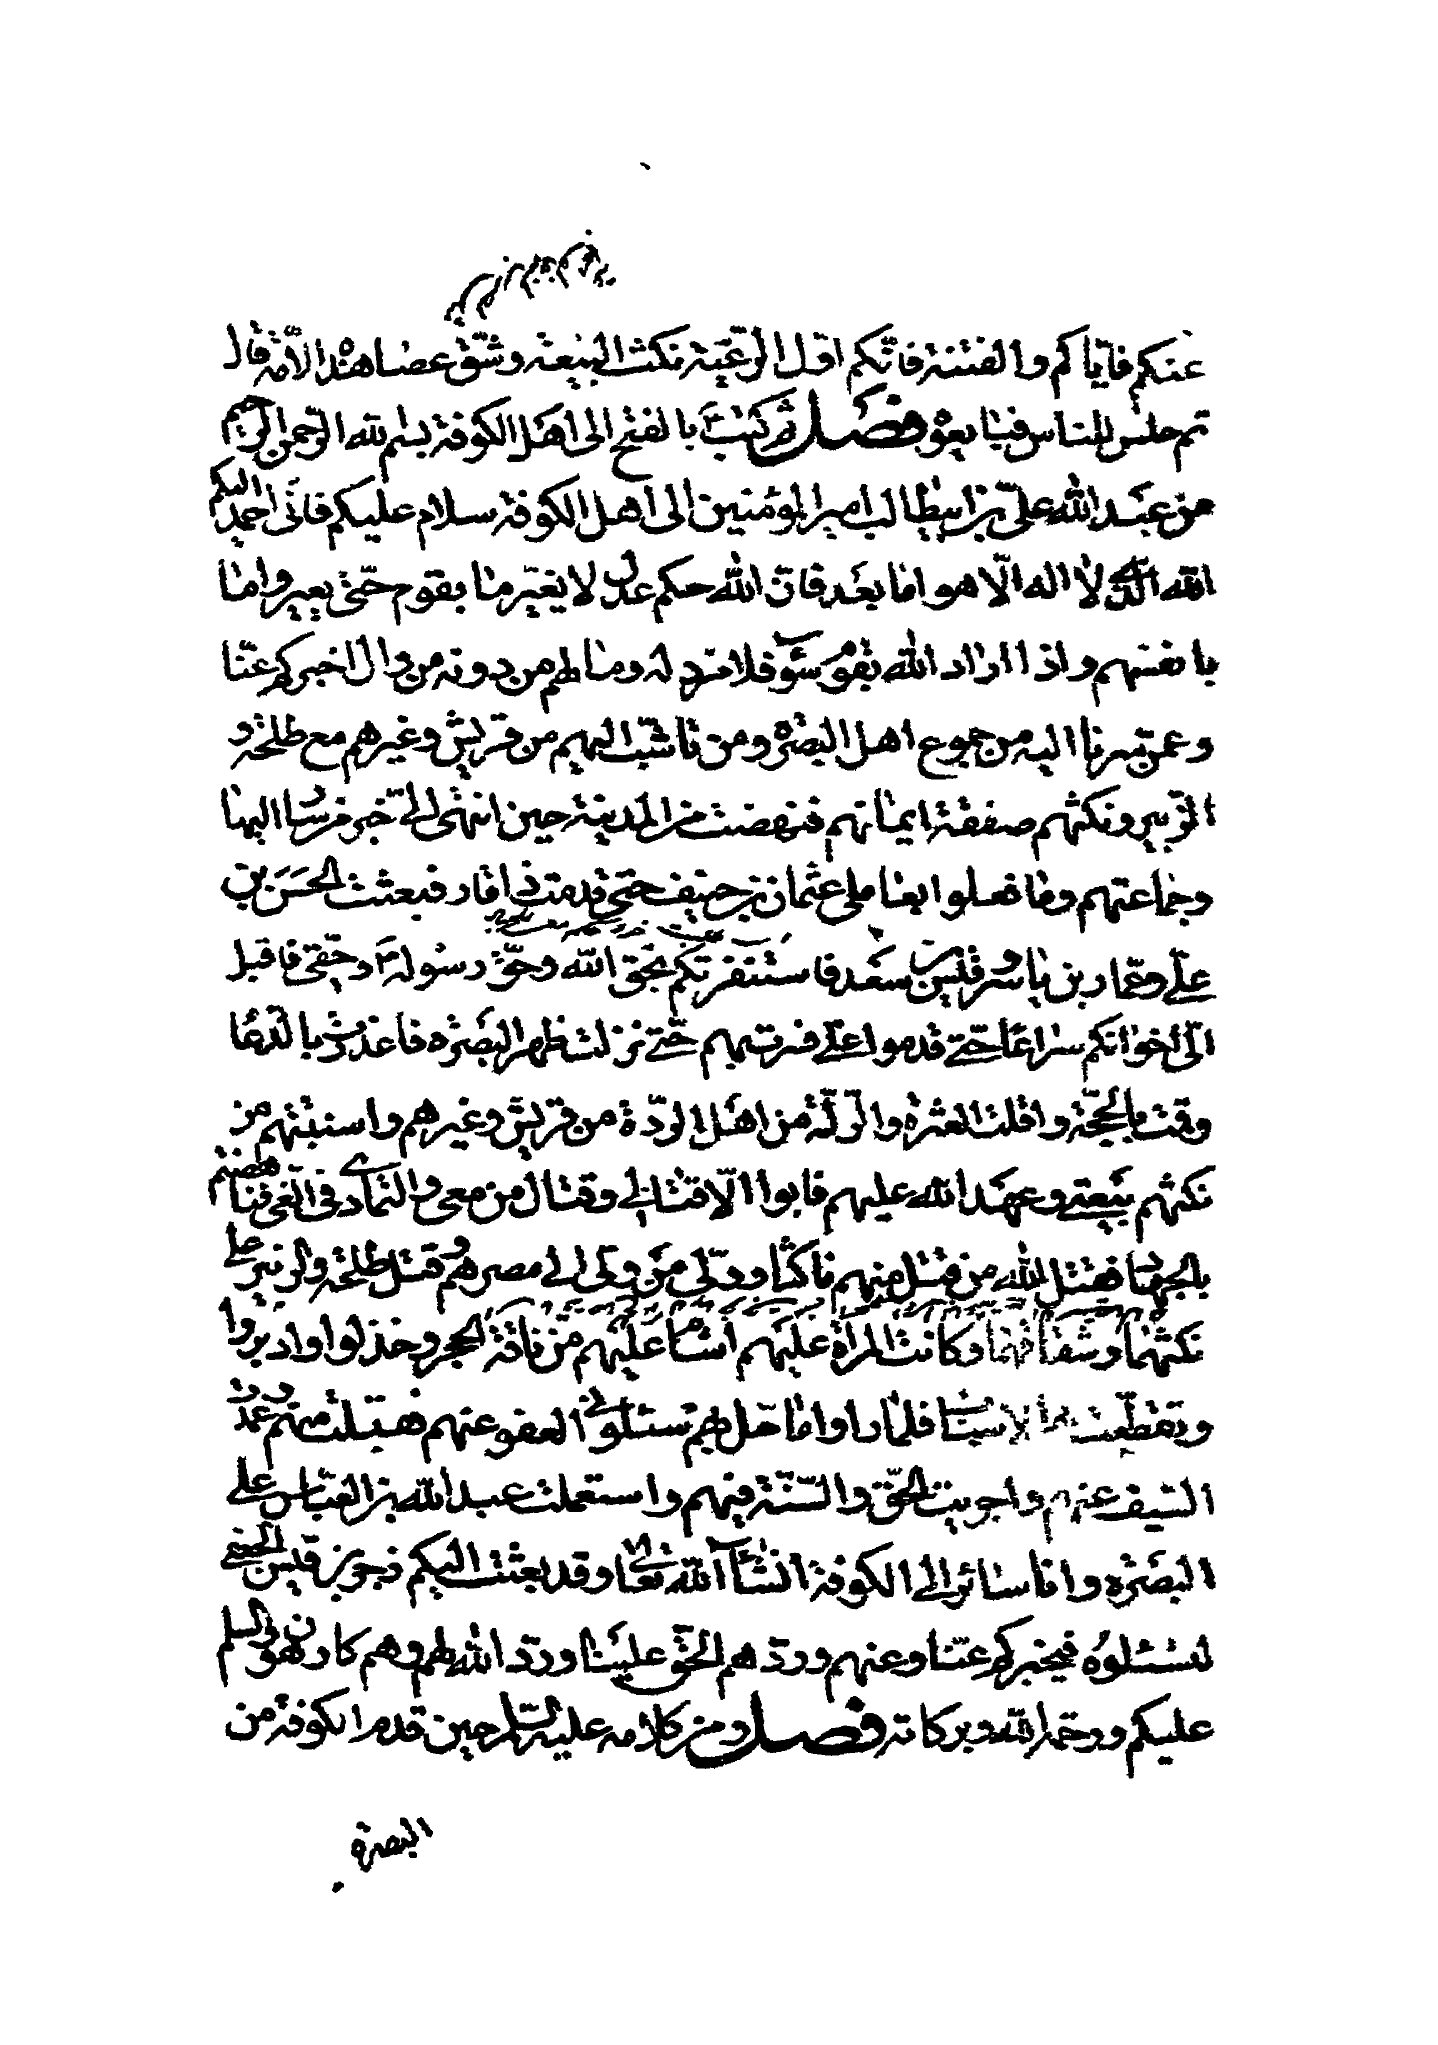 عنكم فاياكم والفتنة فانكم اول الرعية نكث البيعة وشق عصا هذا الامة قال
ثم جلس للناس فبايعوه فصل ثم كتب بالفتح الى اهل الكوفة بسم الله الرحمن الرحيم
من عبد الله علي بن ابيطالب امير المؤمنين الى اهل الكوفة سلام عليكم فاني احمد اليكم
الله الذي لا اله الا هو اما بعد فان الله حكم عدل لا يغير ما بقوم حتى يغيروا ما
بانفسهم واذا اراد الله بقوم سوء فلا مرد له وما لهم من دونه من وال اخبركم عنا
وعمن سرنا اليه من جموع اهل البصرة ومن تاشب اليهم من قريش وغيرهم مع طلحة و
الزبير ونكثهم صفقة ايمانهم فنهضت من المدينة حين انتهى الي خبر من سار اليها
وجماعتهم وما فعلوا بعاملي عثمان بن حنيف حتى قدمت ذا قار فبعثت الحسن بن
علي وعمار بن ياسر وقيس بن سعد فاستنفرتكم بحق الله وحق رسوله وحقي فاقبل
الي اخوانكم سراعا حتى قدموا علي فسرت بهم حتى نزلت ظهر البصرة فاعذرت بالدعا
وقمت بالحجة واقلت العثرة والزلة من اهل الردة من قريش وغيرهم واستبتهم من
نكثهم بيعتي وعهد الله عليهم فابوا الا قتالي وقتال من معي والتمادي في الغي فناهضتهم
بالجهاد فقتل الله من قتل منهم ناكثا وولى من ولى الى مصرهم وقتل طلحة والزبير على
نكثهما وشقاقهما وكانت المراة عليهم اشام عليهم من ناقة الحجر وخذلوا وادبروا
وتقطعت بهم الاسباب فلما راوا ما حل بهم سئلوني العفو عنهم فقبلت منهم وغمدت
السيف عنهم واجريت الحق والسنة فيهم واستعملت عبد الله بن العباس على
البصرة وانا سائر الى الكوفة انشاء الله تعالى وقد بعثت اليكم زجر بن قيس الجعفي
لتسئلوه فيخبركم عنا وعنهم وردهم الحق علينا ورد الله لهم وهم كارهون والسلم
عليكم ورحمة الله وبركاته فصل ومن كلامه عليه السلم حين قدم الكوفة من
البصرة